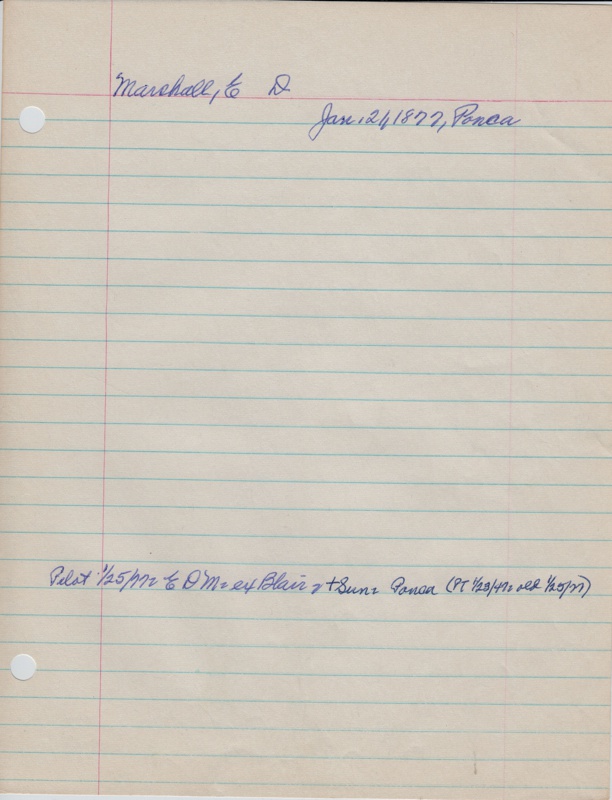 Marshall, E D
Jan. 24, 1877, Ponca
Pilot 1/25/77: E D M: ex Blair & + Sun: Ponca (PT 1/23/77: old 1/25/77)